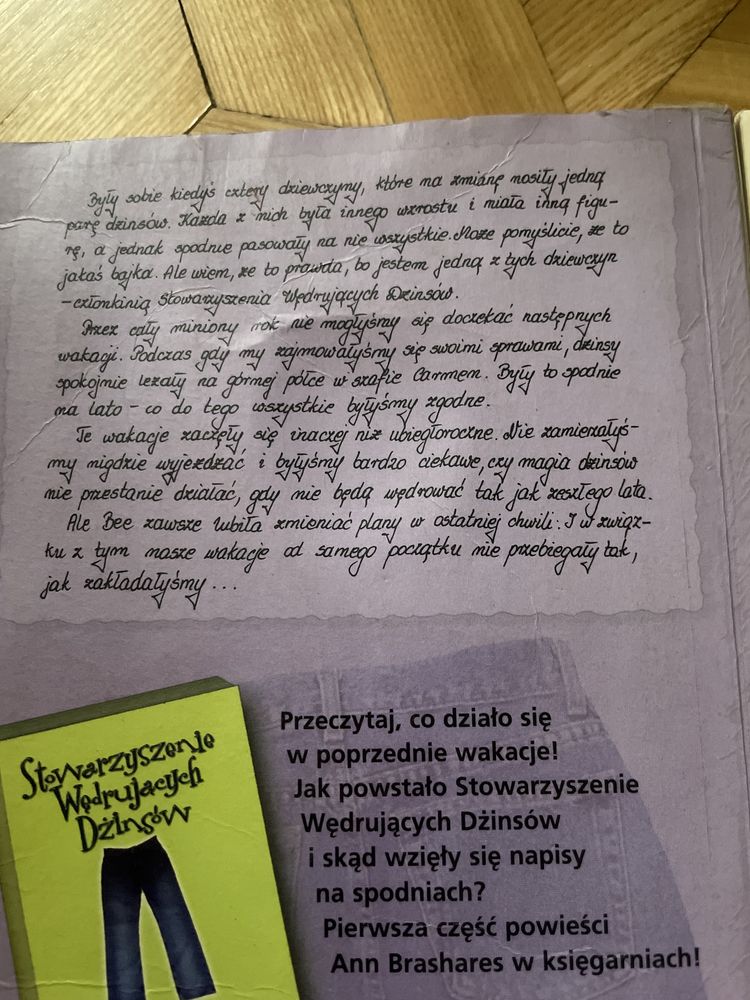 Były sobie kiedyś cztery dziewczyny, które na zmianę nosiły jedną
parę dżinsów. Każda z nich była innego wzrostu i miała inną figu-
rę, a jednak spodnie pasowały na nie wszystkie. Może pomyślicie, że to
jakaś bajka. Ale wiem, że to prawda, bo jestem jedną z tych dziewczyn
- członkinią Stowarzyszenia Wędrujących Dżinsów.
Przez cały miniony rok nie mogłyśmy się doczekać następnych
wakacji. Podczas gdy my zajmowałyśmy się swoimi sprawami, dżinsy
spokojnie leżały na górnej półce w szafie Carmen. Były to spodnie
na lato - co do tego wszystkie byłyśmy zgodne.
Te wakacje zaczęły się inaczej niż ubiegłoroczne. Nie zamierzałyś-
my nigdzie wyjeżdżać i byłyśmy bardzo ciekawe, czy magia dżinsów
nie przestanie działać, gdy nie będą wędrować tak jak zeszłego lata.
Ale Bee zawsze lubiła zmieniać plany w ostatniej chwili. I w związ-
ku z tym nasze wakacje od samego początku nie przebiegały tak,
jak zakładałyśmy...
Stowarzyszenie
Wędrujących
Dżinsów
Przeczytaj, co działo się
w poprzednie wakacje!
Jak powstało Stowarzyszenie
Wędrujących Dżinsów
i skąd wzięły się napisy
na spodniach?
Pierwsza część powieści
Ann Brashares w księgarniach!